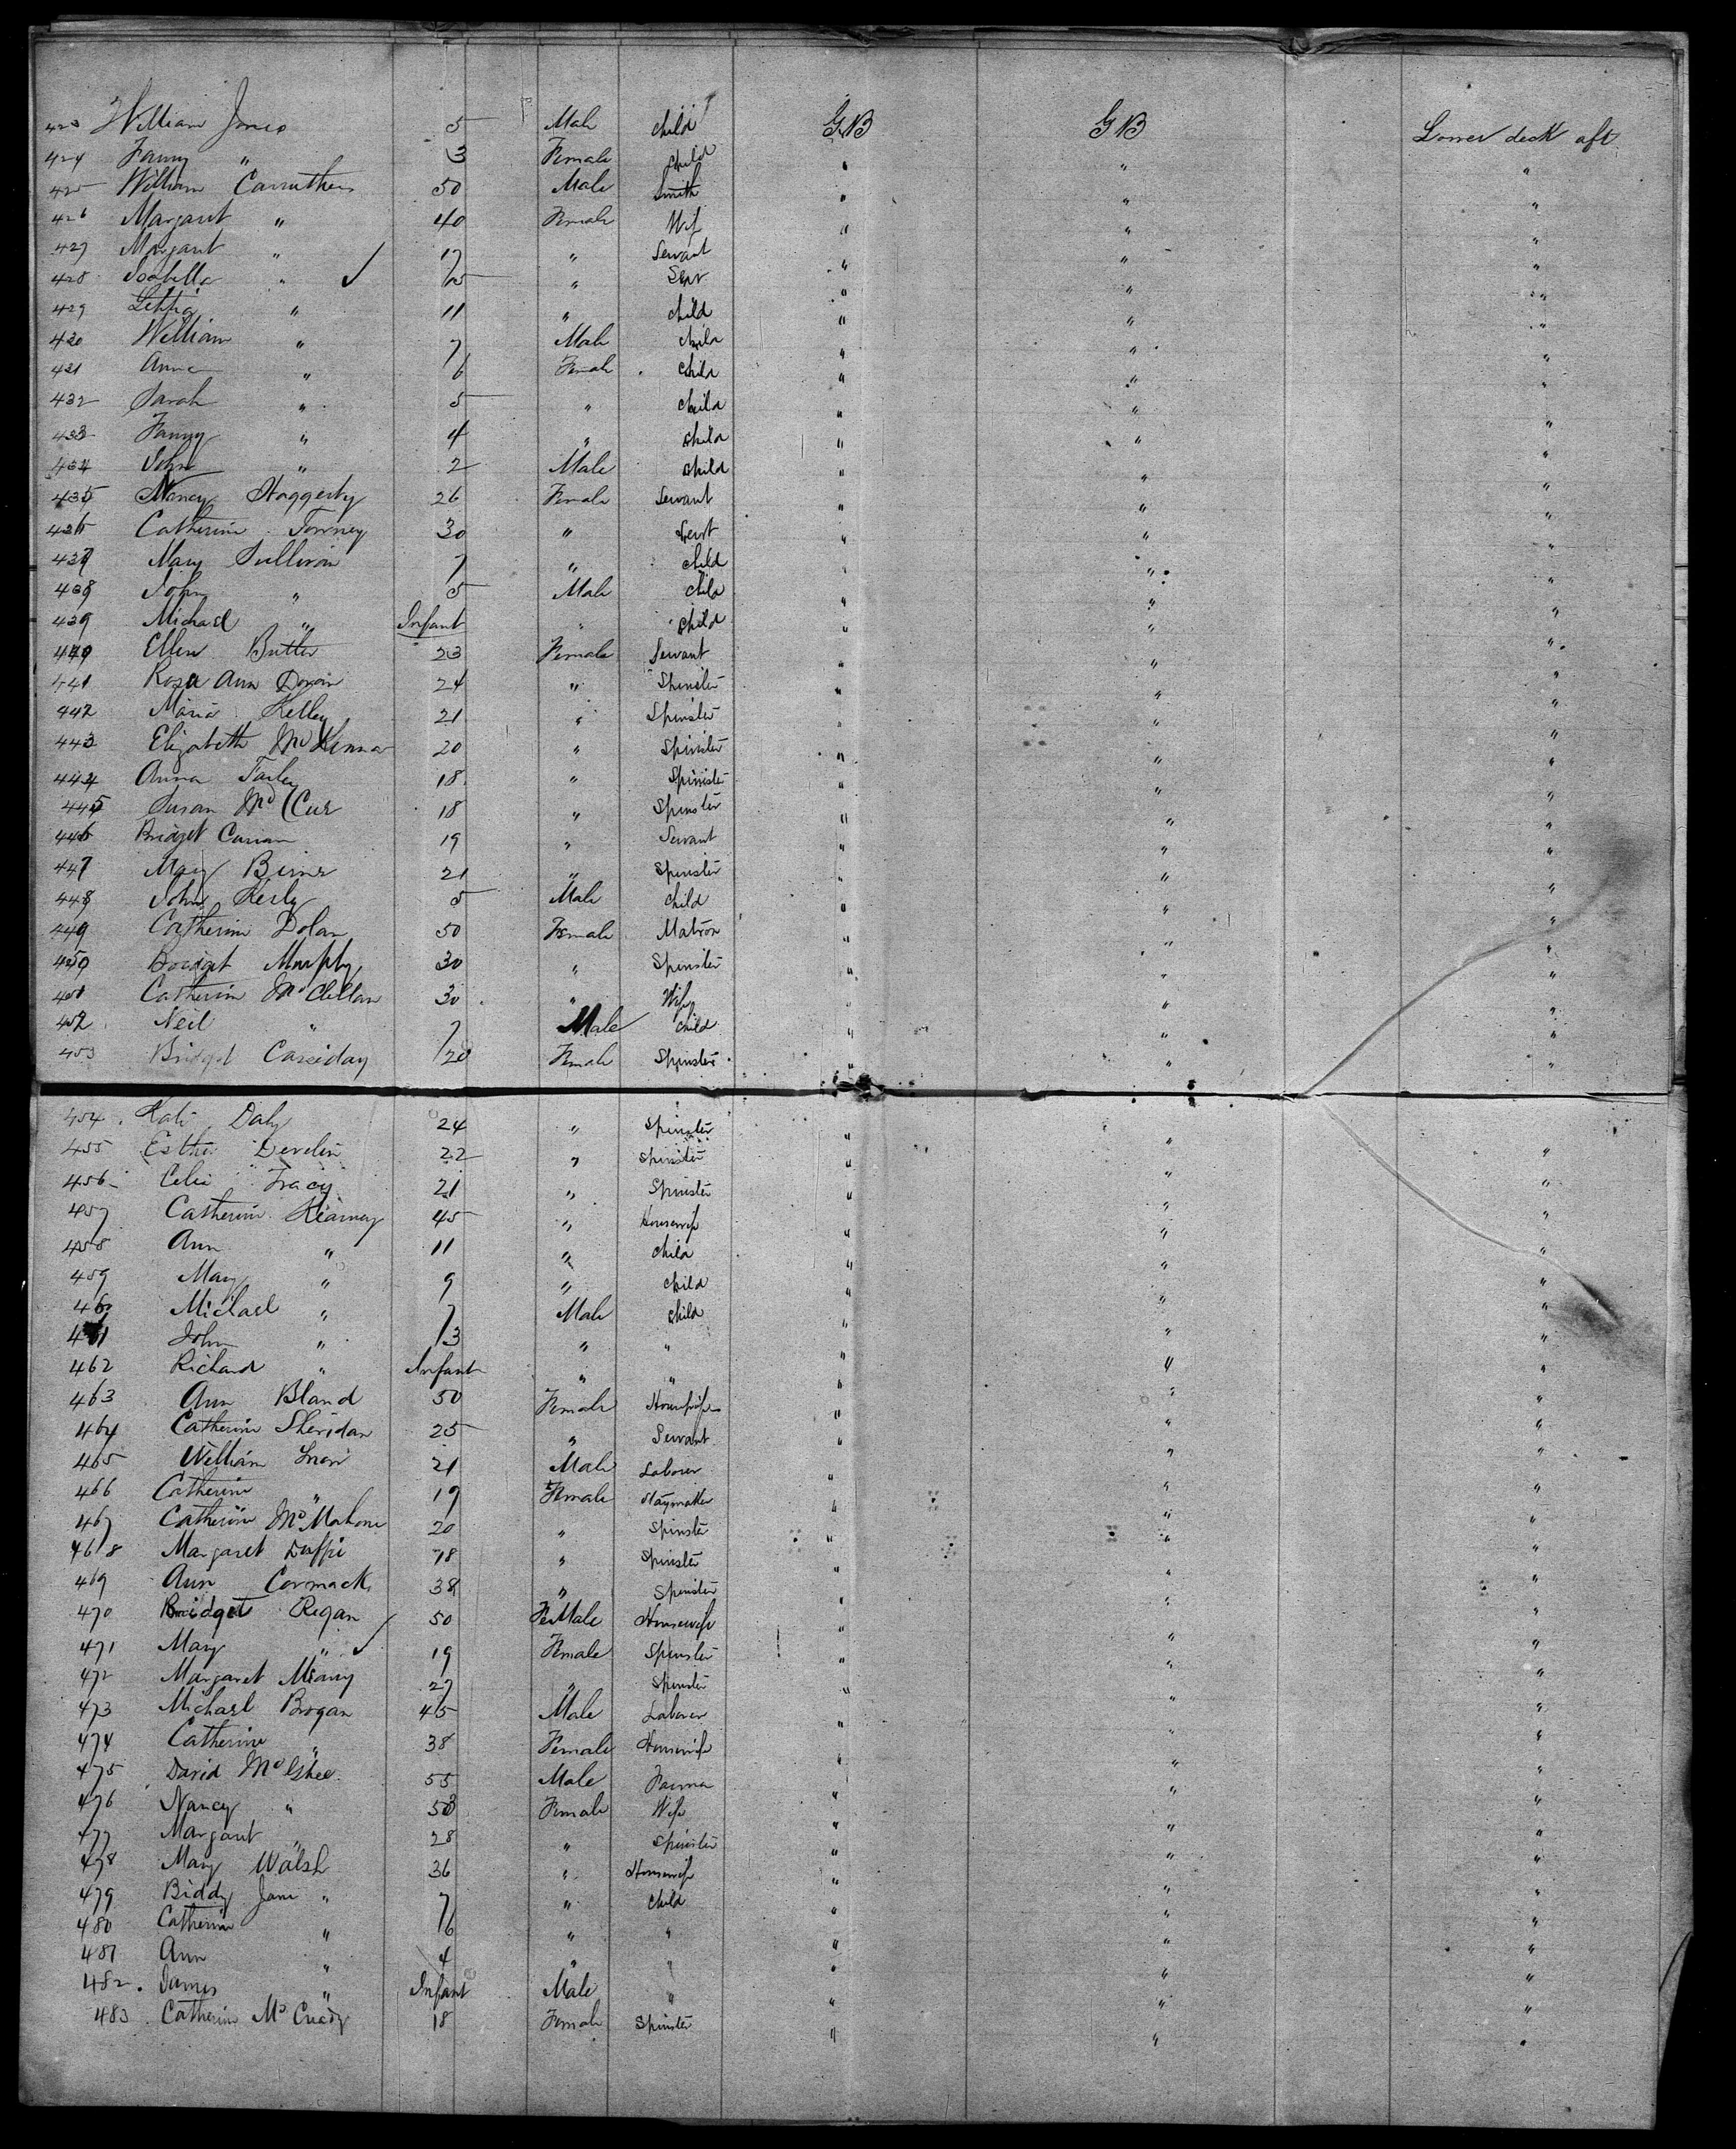 423 William Jones 5 Male child GB GB Lower deck aft
424 Fanny " 3 Female child " " "
425 William Carruthers 50 Male Smith " " "
426 Margaret " 40 Female Wife " " "
427 Margaret " 17 " Servant " " "
428 Isabella " ✓ 15 " Serv " " "
429 " 11 " child " " "
430 William " 7 Male child " " "
431 Anne " 6 Female child " " "
432 Sarah " 5 " child " " "
433 Fanny " 4 " child " " "
434 John " 2 Male child " " "
435 Nancy Haggerty 26 Female Servant " " "
436 Catherine 30 " Servt " " "
437 Mary Sullivan 7 " child " " "
438 John " 5 Male child " " "
439 Michael " Infant " child " " "
440 Ellen Butler 23 Female Servant " " "
441 Rosa Ann Doran 24 " Spinster " " "
442 Maria Kelley 21 " Spinster " " "
443 Elizabeth McKenna 20 " Spinster " " "
444 Anna 18 " Spinster " " "
445 Susan Mc Cue 18 " Spinster " " "
446 Bridget Curran 19 " Servant " " "
447 Mary Birns 21 " Spinster " " "
448 John 5 Male child " " "
449 Catherine Dolan 50 Female Matron " " "
450 Bridget Murphy 30 " Spinster " " "
451 Catherine McClellan 30 " Wife " " "
452 Neil " 7 Male child " " "
453 Bridget Cassiday 20 Female Spinster " " "
454 Kate Daly 24 " Spinster " "
455 Esther Develin 22 " Spinster " " "
456 Celia Tracy 21 " Spinster " " "
457 Catherine Kearney 45 " Housewife " " "
458 Ann " 11 " child " " "
459 Mary " 9 " child " " "
460 Michael " 7 Male child " " "
461 John " 3 " " " " "
462 Richard " Infant " " " " "
463 Ann Bland 50 Female Housewife " " "
464 Catherine Sheridan 25 " Servant " " "
465 William 21 Male Laborer " " "
466 Catherine " 19 Female Staymaker " " "
467 Catherine McMahone 20 " Spinster " " "
468 Margaret Duffie 18 " Spinster " " "
469 Ann Cormack 38 " Spinster " " "
470 Bridget Regan 50 FeMale Housewife " " "
471 Mary " ✓ 19 Female Spinster " " "
472 Margaret 27 " Spinster " " "
473 Michael Brogan 45 Male Laborer " " "
474 Catherine " 38 Female Housewife " " "
475 David McGhee 55 Male Farmer " " "
476 Nancy " Female Wife " " "
477 Margaret " 28 " Spinster " " "
478 Mary Walsh 36 " Housewife " " "
479 Biddy Jane " 7 " child " " "
480 Catherine " 6 " " " " "
481 Ann " 4 " " " " "
482 James " Infant Male " " " "
483 Catherine McCready 18 Female Spinster " " "